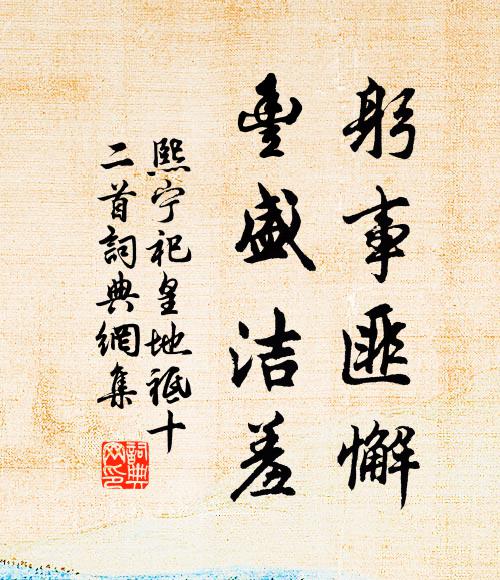 躬事匪懈
豊盛洁羞
熙宁祀皇地祇十
二首詞典網集
詞典
网印